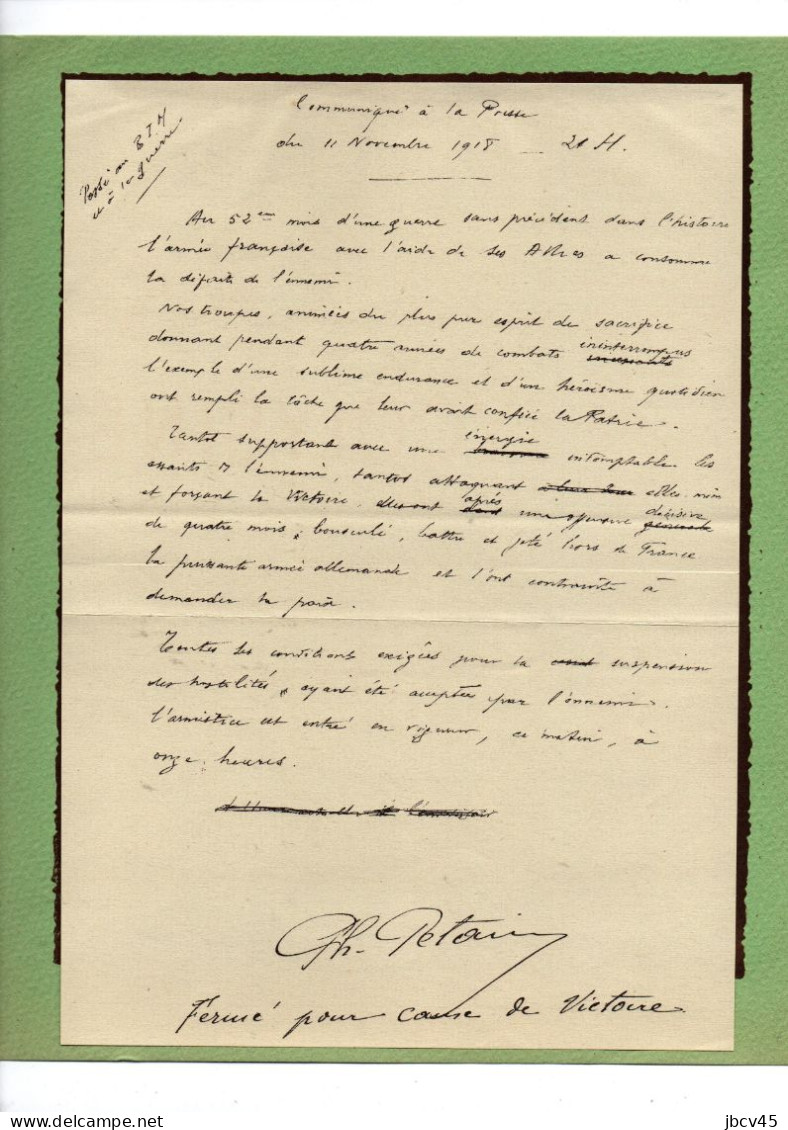 Communiqué à la Presse
du 11 Novembre 1918 — 21 H.
Passé au
et à la Guerre
Au 52ème mois d'une guerre sans précédent dans l'histoire
l'armée française avec l'aide de ses Alliés a consommé
la défaite de l'ennemi.
Nos troupes, animées du plus pur esprit de sacrifice
donnant pendant quatre années de combats ininterrompus
l'exemple d'une sublime endurance et d'un héroïsme quotidien
ont rempli la tâche que leur avait confiée la Patrie.
Tantôt supportant avec une énergie indomptable les
assauts de l'ennemi, tantôt attaquant elles-mêm
et forçant la Victoire, elles ont après une offensive décisive
de quatre mois, bousculé, battu et jeté hors de France
la puissante armée allemande et l'ont contrainte à
demander la paix.
Toutes les conditions exigées pour la suspension
des hostilités, ayant été acceptées par l'ennemi.
l'armistice est entré en vigueur, ce matin, à
onze heures.
Ph. Petain
Fermé pour cause de Victoire
jbcv45